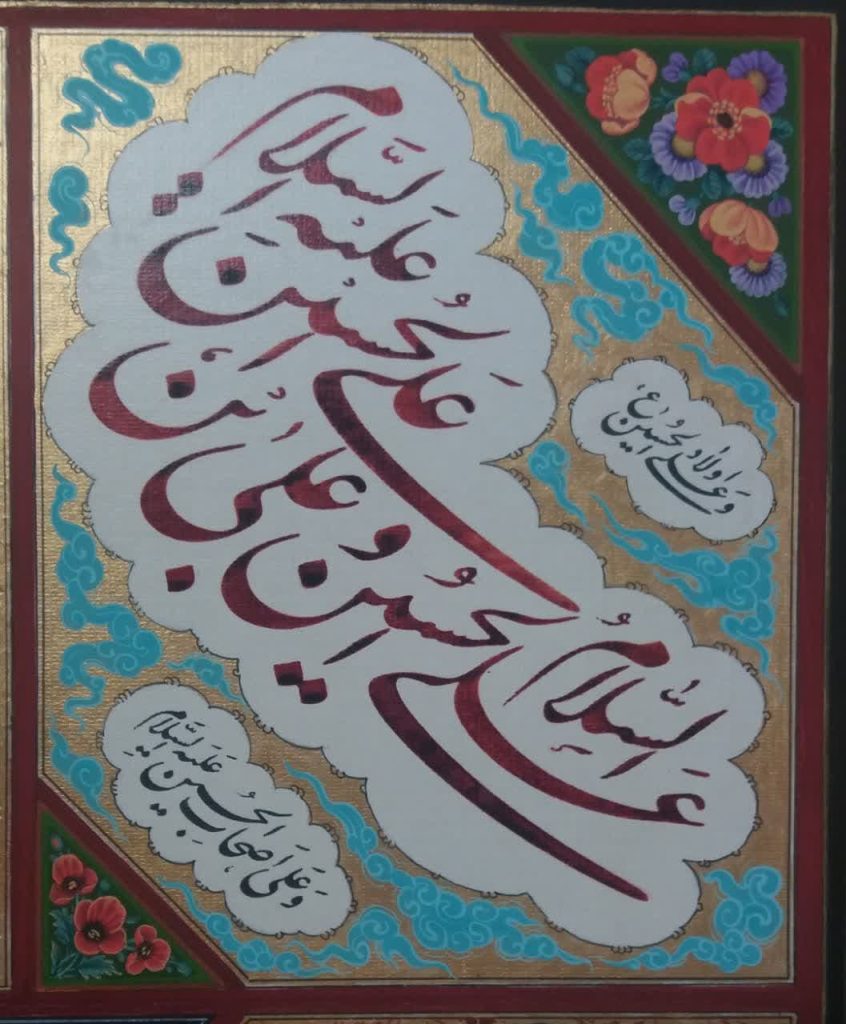 السَّلامُ عَلَى الحُسین وَ عَلَى عَلی ابْن الحُسَیْن عَلَیْه السَّلام
وَ عَلَى اَولاد الحُسَین (ع)
وَ عَلَى اَصحابِ الحُسَین عَلَیْه السَّلام